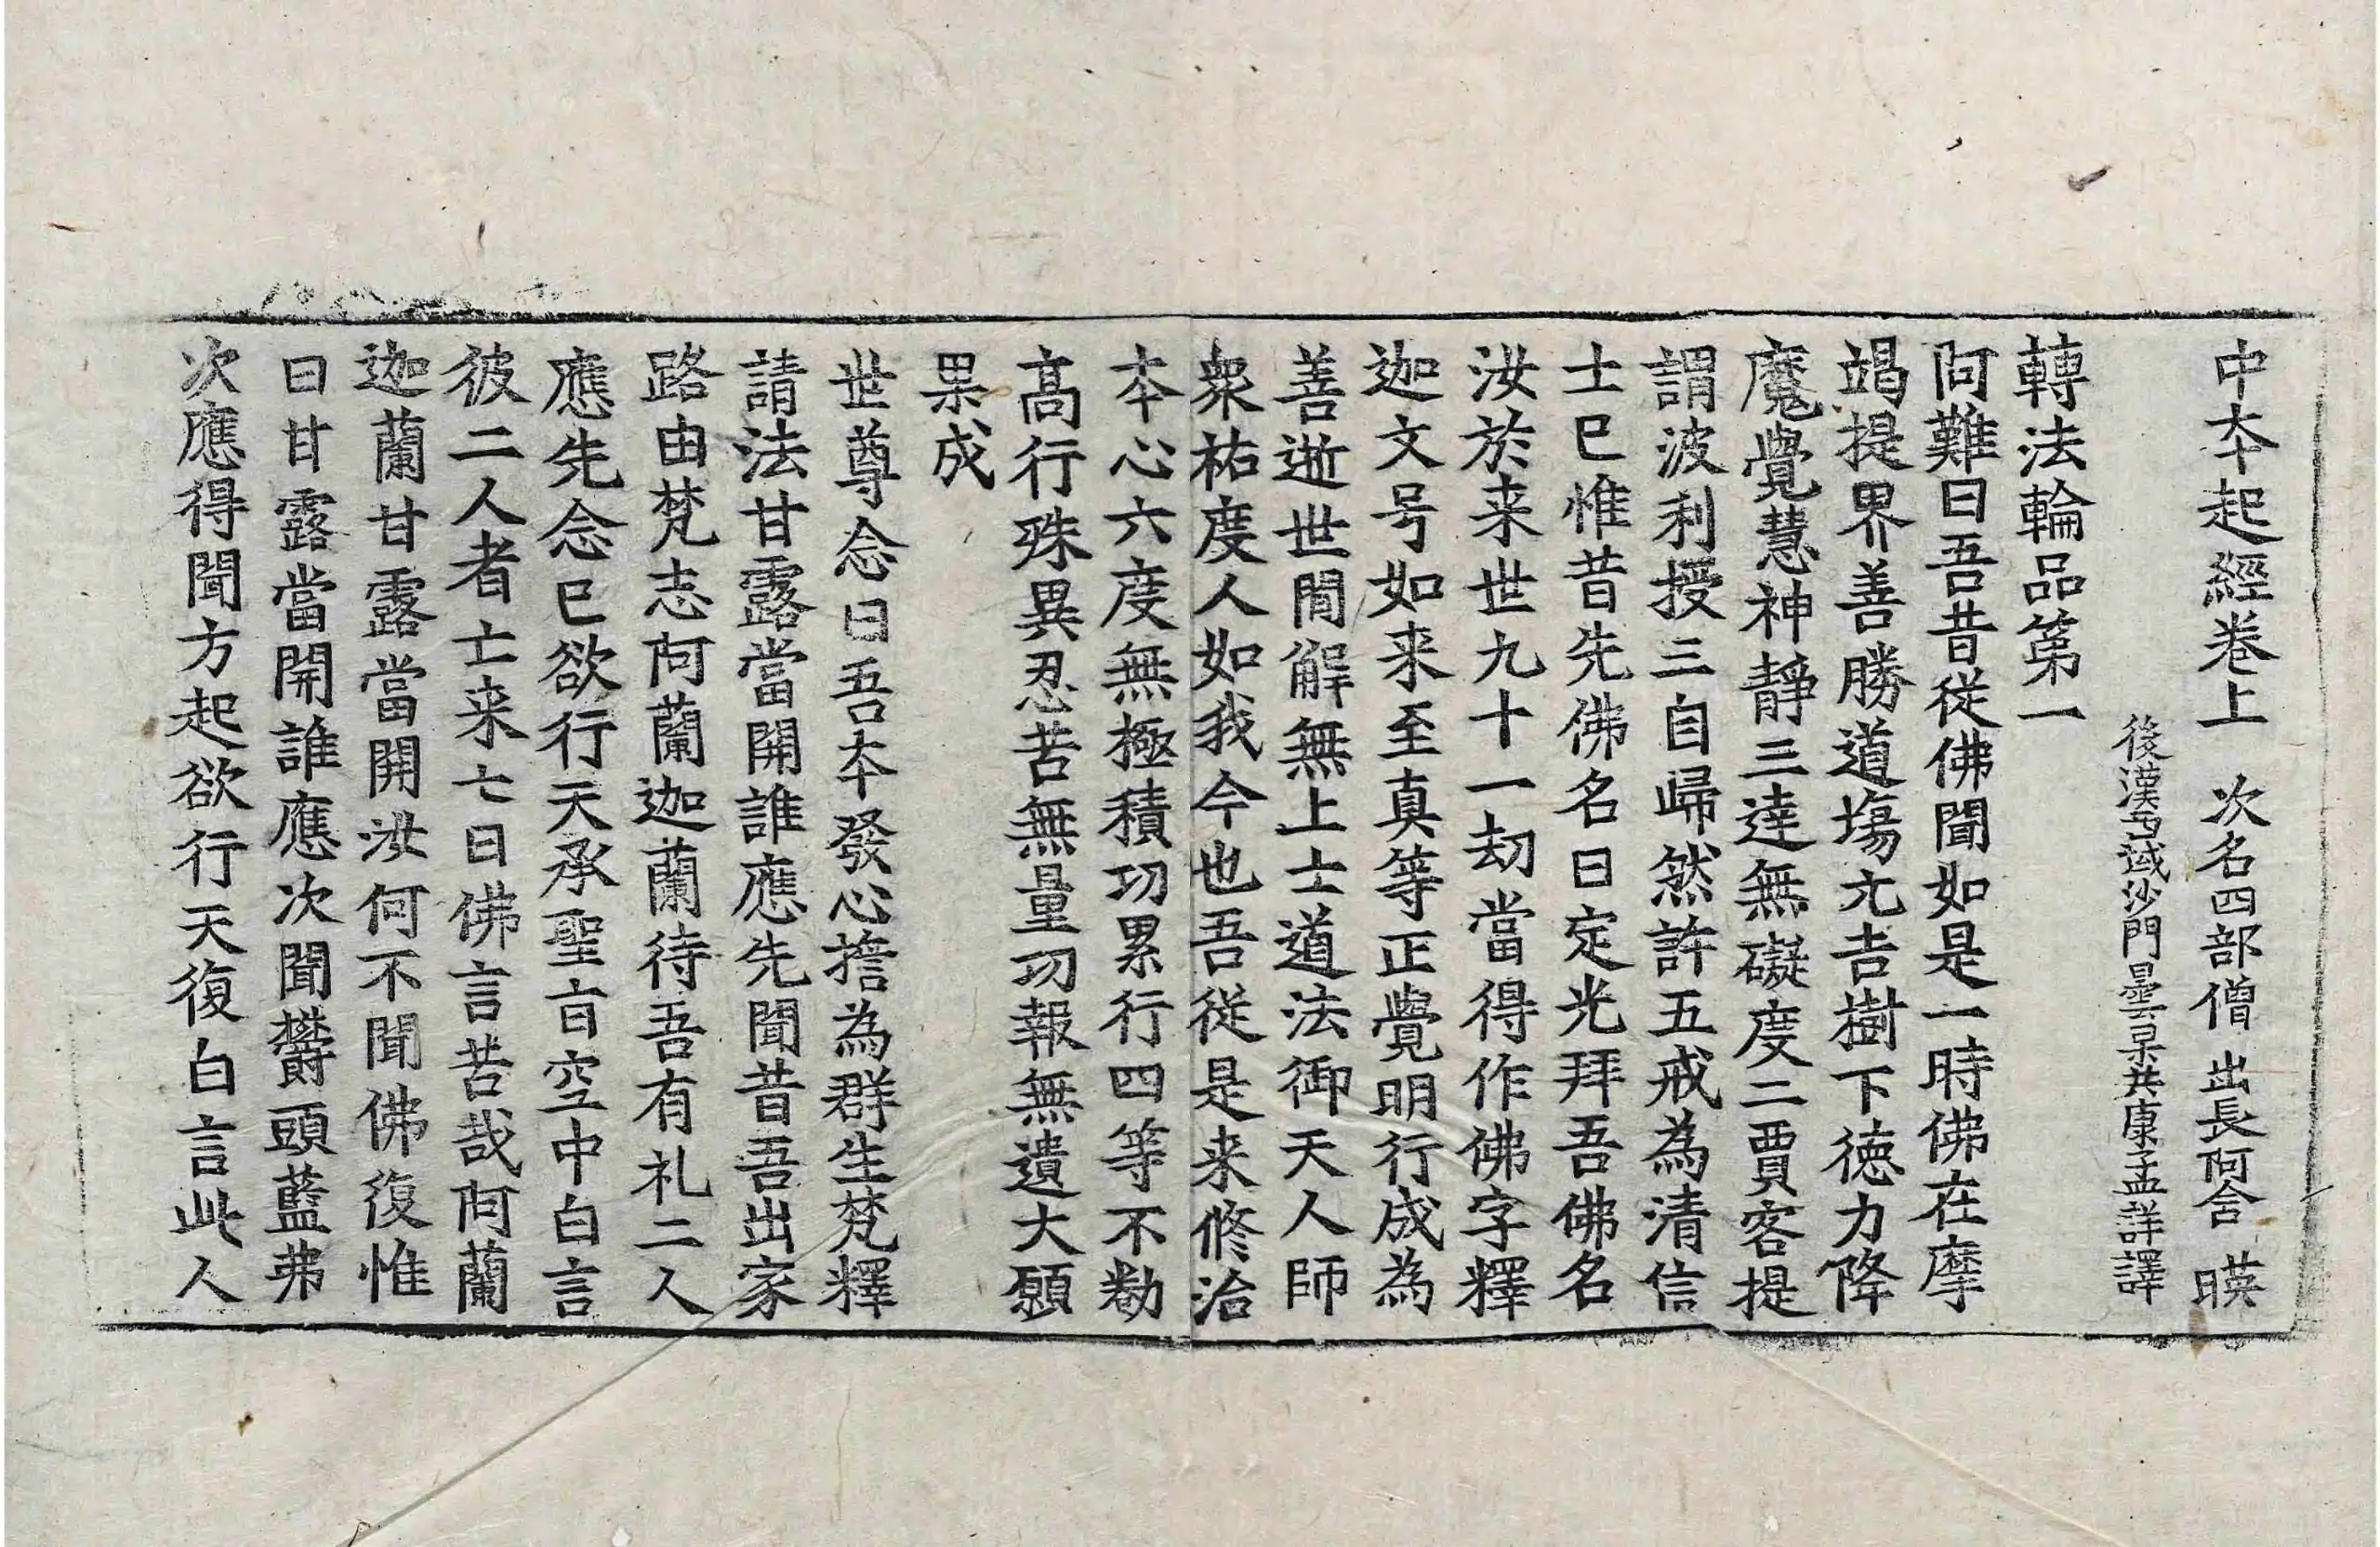 中本起經卷上 次名四部僧 出長阿含 暎
後漢西域沙門曇果共康孟詳譯
轉法輪品第一
阿難曰吾昔從佛聞如是一時佛在摩
竭提界善勝道場元吉樹下德力降
魔覺慧神靜三達無礙度二賈客提
謂波利授三自歸然許五戒為清信
士已惟昔先佛名曰定光拜吾佛名
汝於来世九十一劫當得作佛字釋
迦文号如来至真等正覺明行成為
善逝世間解無上士道法御天人師
衆祐度人如我今也吾從是来修治
本心六度無極積功累行四等不勌
高行殊異忍苦無量功報無遺大願
果成
世尊念曰吾本發心擔為群生梵釋
請法甘露當開誰應先聞昔吾出家
路由梵志阿蘭迦蘭待吾有礼二人
應先念已欲行天承聖旨空中白言
彼二人者亡来七日佛言苦哉阿蘭
迦蘭甘露當開汝何不聞佛復惟
曰甘露當開誰應次聞欝頭藍弗
次應得聞方起欲行天復白言此人